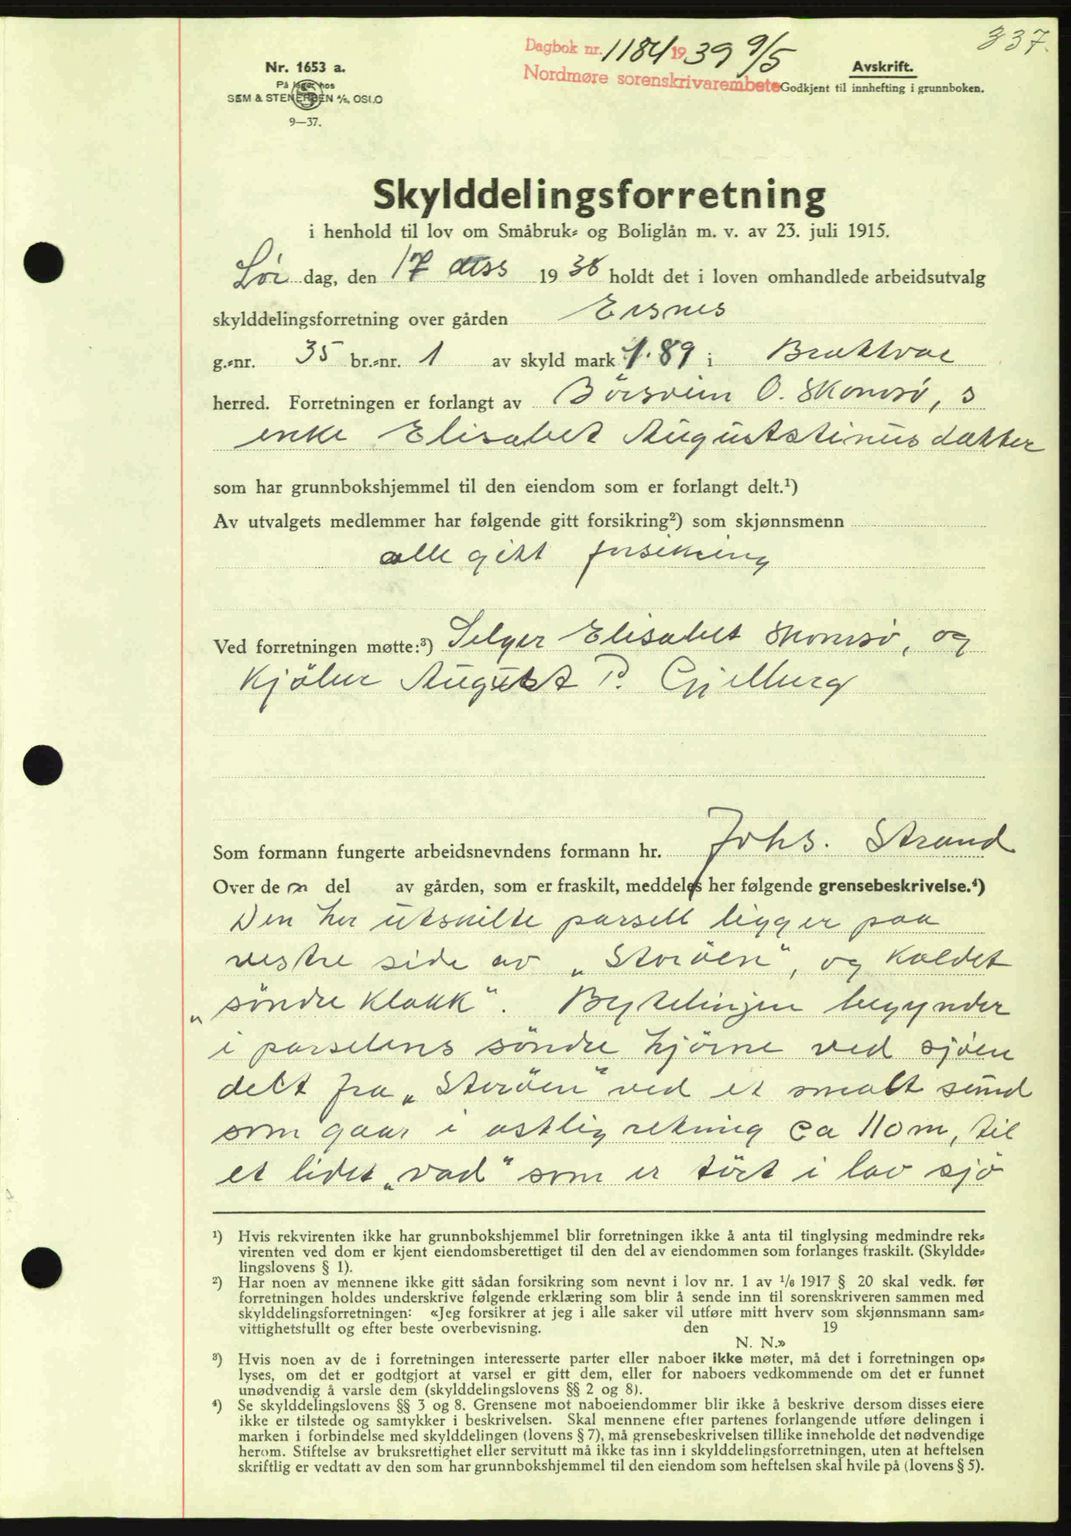 337.
Dagbok nr. 1184 1939 9/5
Nordmøre sorenskrivarembete
Nr. 1653 a.
På lager hos
SEM & STENERSEN A/S, OSLO
9—37.
Avskrift.
Godkjent til innhefting i grunnboken.
Skylddelingsforretning
i henhold til lov om Småbruk- og Boliglån m. v. av 23. juli 1915.
Lør dag, den 17 dess 1938 holdt det i loven omhandlede arbeidsutvalg
skylddelingsforretning over gården Ersnes
g.-nr. 35 br.-nr. 1 av skyld mark 1.89 i Brattvær
herred. Forretningen er forlangt av O. Skomsø, s
enke Elisabet Augustatinusdatter
som har grunnbokshjemmel til den eiendom som er forlangt delt.¹)
Av utvalgets medlemmer har følgende gitt forsikring²) som skjønnsmenn
alle gitt forsikring
Ved forretningen møtte:³) Selger Elisabet Skomsø, og
Kjøber August P. Gjelberg
Som formann fungerte arbeidsnevndens formann hr. Johs. Strand
Over de n del av gården, som er fraskilt, meddeles her følgende grensebeskrivelse.⁴)
Den her utskilte parsell ligger paa
vestre side av „Storöen", og kaldet
„söndre Klakk". Bytelinjen begynder
i parselens söndre hjörne ved sjöen
delt fra „Storöen" ved et smalt sund
som gaar i ostlig retning ca 110 m, til
et lidet „vad" som er tört i lav sjö
¹) Hvis rekvirenten ikke har grunnbokshjemmel blir forretningen ikke å anta til tinglysing medmindre rek-
virenten ved dom er kjent eiendomsberettiget til den del av eiendommen som forlanges fraskilt. (Skyldde-
lingslovens § 1).
²) Har noen av mennene ikke gitt sådan forsikring som nevnt i lov nr. 1 av 1/6 1917 § 20 skal vedk. før
forretningen holdes underskrive følgende erklæring som blir å sende inn til sorenskriveren sammen med
skylddelingsforretningen: «Jeg forsikrer at jeg i alle saker vil utføre mitt hverv som skjønnsmann sam-
vittighetsfullt og efter beste overbevisning. den 19
N. N.»
³) Hvis noen av de i forretningen interesserte parter eller naboer ikke møter, må det i forretningen op-
lyses, om det er godtgjort at varsel er gitt dem, eller for naboers vedkommende om det er funnet
unødvendig å varsle dem (skylddelingslovens §§ 2 og 8).
⁴) Se skylddelingslovens §§ 3 og 8. Grensene mot naboeiendommer blir ikke å beskrive dersom disses eiere
ikke er tilstede og samtykker i beskrivelsen. Skal mennene efter partenes forlangende utføre delingen i
marken i forbindelse med skylddelingen (lovens § 7), må grensebeskrivelsen tillike inneholde det nødvendige
herom. Stiftelse av bruksrettighet eller servitutt må ikke tas inn i skylddelingsforretningen, uten at heftelsen
skriftlig er vedtatt av den som har grunnbokshjemmel til den eiendom som heftelsen skal hvile på (lovens § 5).